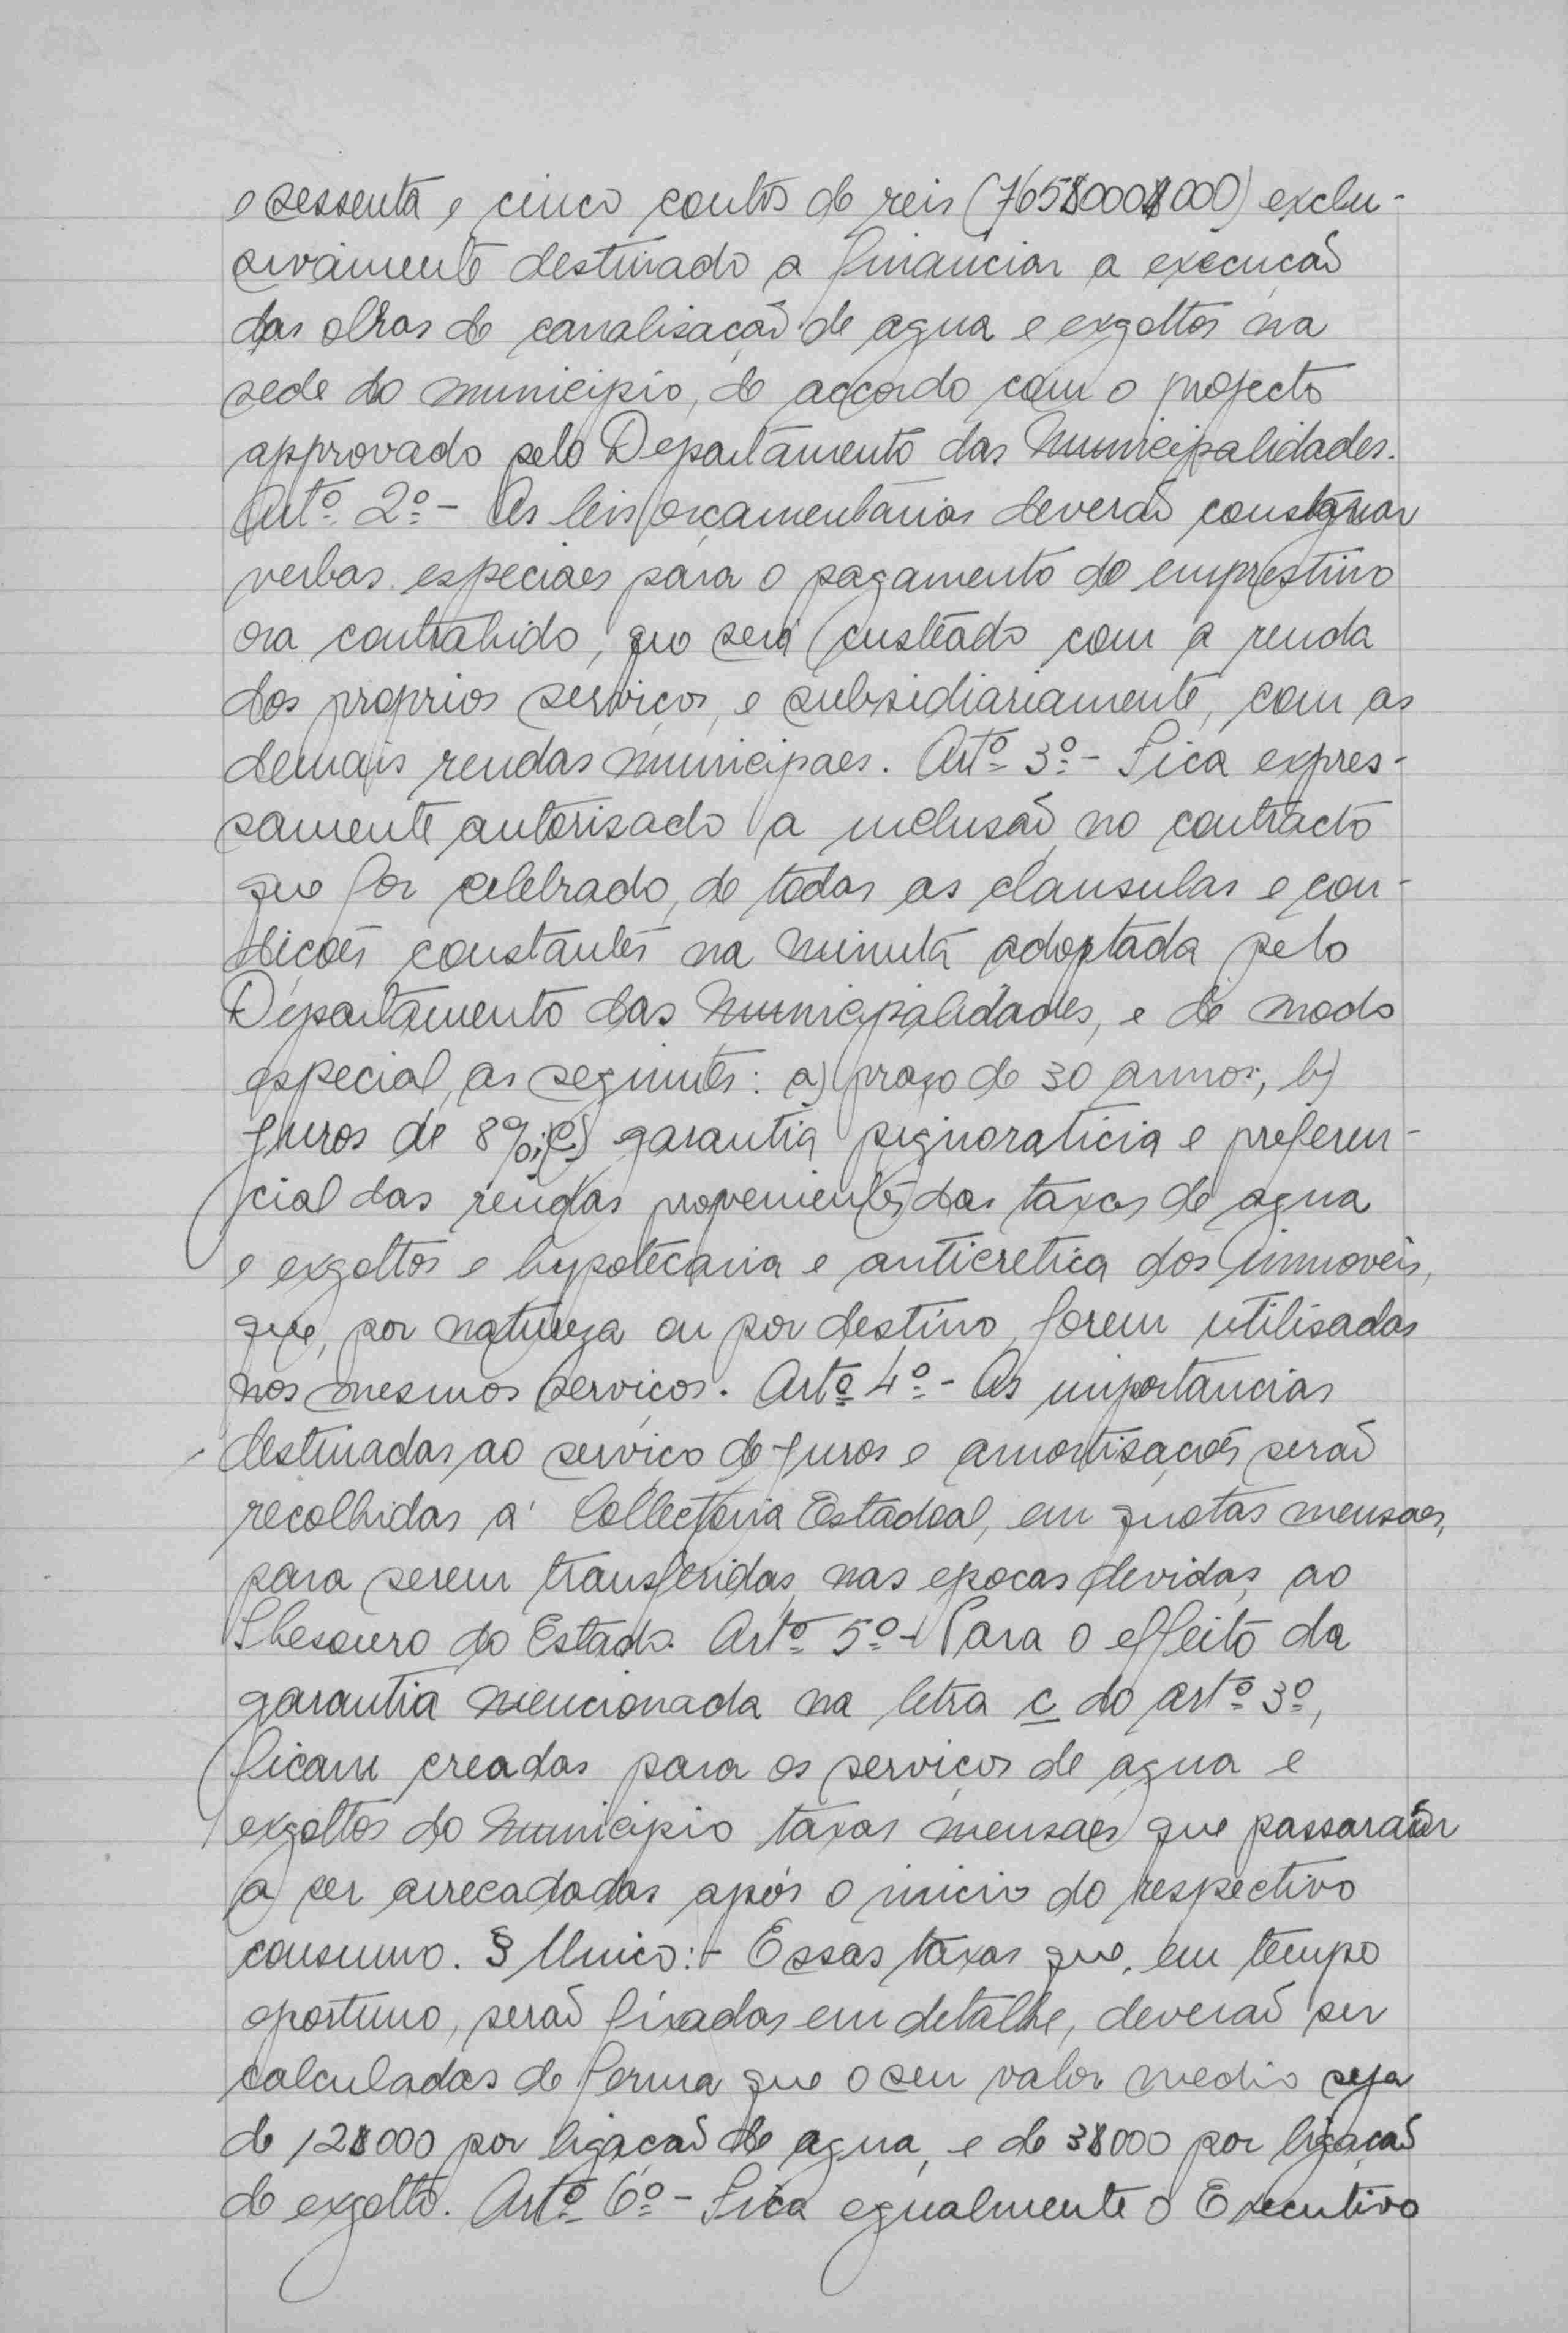 e sessenta e cinco contos de reis (765$000$000) exclu-
sivamente destinado a financiar a execução
das obras de canalisação de agua e exgottos na
sede do municipio, de accordo com o projecto
approvado pelo Departamento das Municipalidades.
Artº 2º - As leis orçamentarias deverão consignar
verbas especiaes para o pagamento do emprestimo
ora contrahido, que será custeado com a renda
dos proprios serviços, e subsidiariamente, com as
demais rendas municipaes. Artº 3º - Fica expres-
samente autorisado a inclusão, no contracto
que for celebrado, de todas as clausulas e con-
dições constantes na minuta adoptada pelo
Departamento das Municipalidades, e de modo
especial, as seguintes: a) prazo de 30 annos; b)
juros de 8%; c) garantia pignoraticia e preferen-
cial das rendas provenientes das taxas de agua
e exgottos e hypotecaria e anticretica dos immoveis,
que, por natureza ou por destino, forem utilisadas
nos mesmos serviços. Artº 4º - As importancias
destinadas ao serviço de juros e amortisações serão
recolhidas á Collectoria Estadoal, em quotas mensaes,
para serem transferidas, nas epocas devidas, ao
Thesouro do Estado. Artº 5º - Para o effeito da
garantia mencionada na letra c do artº 3º,
ficam creadas para os serviços de agua e
exgottos do Municipio taxas mensaes que passarão
a ser arrecadadas após o inicio do respectivo
consumo. § Unico: - Essas taxas que, em tempo
oportuno, serão fixadas em detalhe, deverão ser
calculadas de forma que o seu valor medio seja
de 12$000 por ligação de agua, e de 3$000 por ligação
de exgotto. Artº 6º - Fica egualmente o Executivo